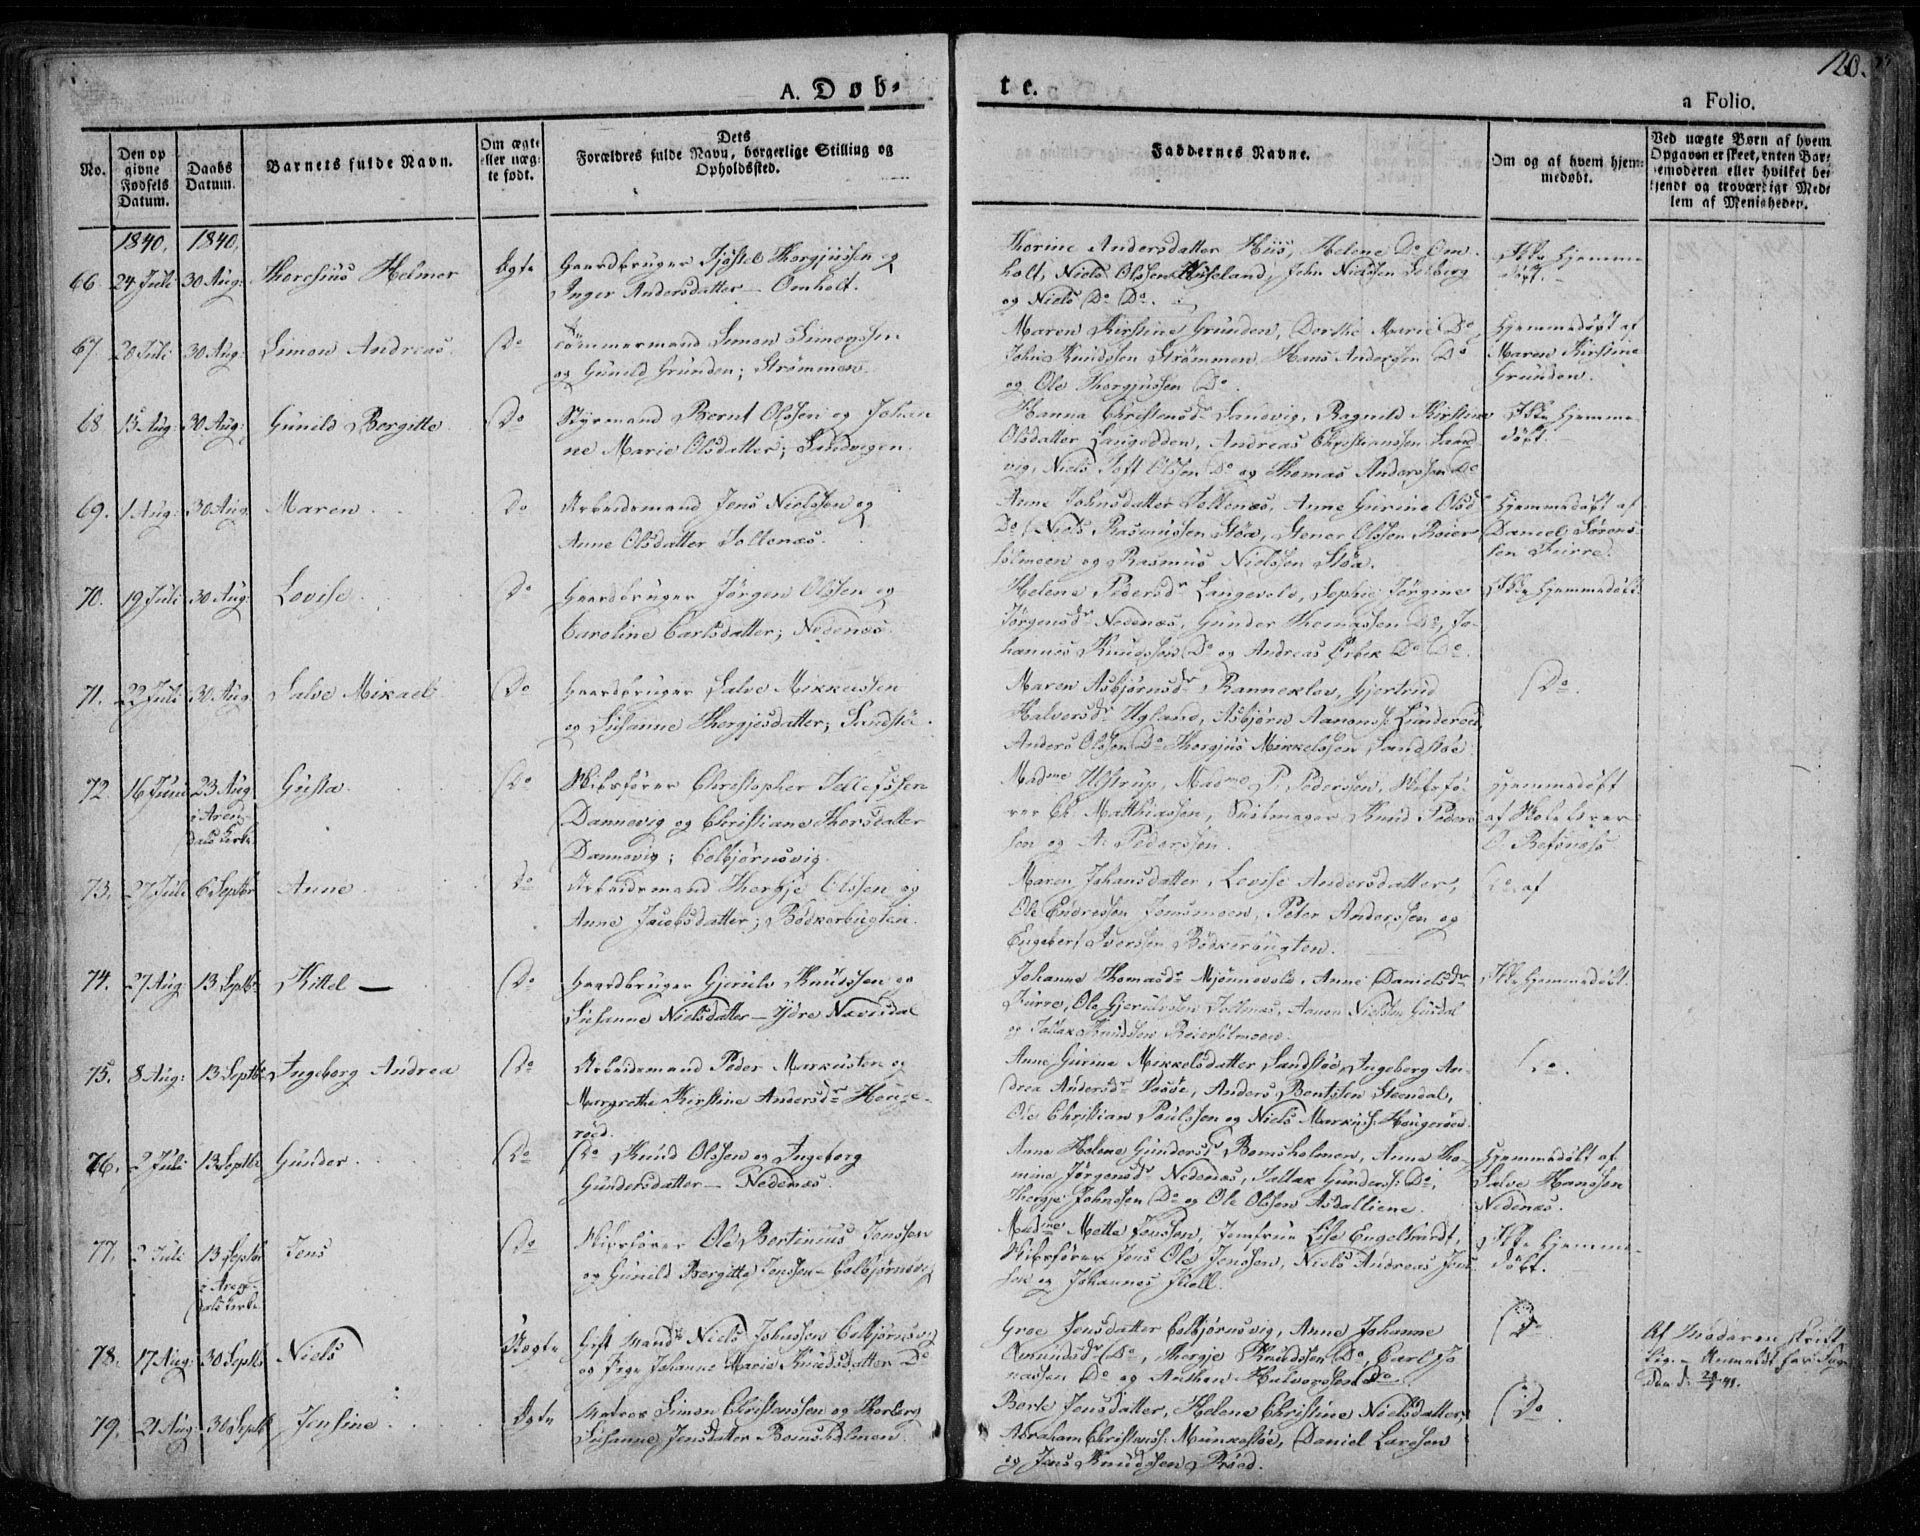 120.
A. Døb-
te.
a Folio.
No.
Den op
givne
Fødsels
Datum.
Daabs
Datum.
Barnets fulde Navn.
Om ægte
eller uæg-
te født.
Dets
Forældres fulde Navn, borgerlige Stilling og
Opholdssted.
Faddernes Navne.
Om og af hvem hjem-
medøbt.
Ved uægte Børn af hvem
Opgaven er skeet, enten Bar-
nemoderen eller hvilket be-
kjendt og troværdigt Med-
lem af Menigheden.
1840. 1840.
66. 24 Juli 30 Aug: Thoresius Helmer Ægte
Gaardbruger Tjøstel Thorgjussen og
Inger Andersdatter - Omholt.
Thorine Andersdatter Hiis, Helene Do Om
holt, Niels Olssen Huseland, John Nielssen
og Niels Do Do.
Ikke hjemme
døbt.
67. 28 Juli 30 Aug: Simon Andreas. Do
Tømmermand Simon Simonssen
og Gunild Grunden; Strømmen.
Maren Kirstine Grunden, Dorthe Marie Do,
John Knudssen Strømmen, Hans Anderssen Do
og Ole Thorgjussen Do.
Hjemmedøbt af
Maren Kirstine
Grunden.
68 15 Aug: 30 Aug: Gunild Bergitte. Do
Styrmand Bernt Olssen og Johan
ne Marie Olsdatter; Sandvigen.
Hanna Christensdr Sandvig, Ragnild Kirstine
Olsdatter Langodden, Andreas Christianssen Sand
vig, Niels Toft Olssen Do og Thomas Anderssen Do
Ikke hjemme
døbt.
69. 1 Aug: 30 Aug. Maren Do
Arbeidsmand Jens Nielssen og
Anne Olsdatter Sollenæs.
Anne Johnsdatter Sollenæs, Anne Gurine Olsd
Do, Niels Rasmussen Støa, Stener Olssen Reier
solmoen og Rasmus Nielssen Støa.
Hjemmedøbt af
Daniel Sørens-
sen Furre.
70. 19 Juli 30 Aug: Lovise Do
Gaardbruger Jørgen Olssen og
Caroline Carlsdatter; Nedenæs.
Helene Pedersdr Langevold, Sophie Jørgine
Jørgensdr Nedenæs, Gunder Thomassen Do, Jo-
hannes Knudssen Do og Andreas Ørbek Do Do.
Ikke hjemmedøbt.
71. 22 Juli 30 Aug. Salve Mikael Do
Gaardbruger Salve Mikkelssen
og Susanne Thorgjusdatter; Sandstø.
Maren Asbjørnsdr Ranneklev, Gjertrud
Halversdr Ugland, Asbjørn Aanonss: Lunderød,
Anders Olssen Do Thorgjus Mikkelssen Sandstøe
Do.
72. 16 Juni 23 Aug Gusta. Do
i Aren-
dals Kirke.
Skibsfører Christopher Tellefssen
Dannevig og Christiane Thorsdatter
Dannevig; Colbjørnsvig.
Madme Ugstrup, Madme P. Pederssen, Skibsfø-
rer Ch. Matthiassen, Seilmager Knud Peders
sen og A. Pederssen.
Hjemmedøbt
af Skolelærer
O. Refsnæss
73. 27 Juli 6 Septbr Anne Do
Arbeidsmand Thergje Olssen og
Anne Jacobsdatter; Bødkerbugten.
Maren Johansdatter, Lovise Andersdatter,
Ole Endressen Jomsmoen, Peter Anderssen og
Engebert Iverssen Bødkerbugten.
Do. af
74. 27 Aug 13 Septbr Kittel - Do
Gaardbruger Gjerulv Knudssen og
Susanne Nielsdatter - Ydre Nævisdal
Johanne Thomasdr Mjønnevold, Anne Danielsdr
Furre, Ole Gjerulvssen Sollenæs, Aanon Nielssen
og Tallak Knudssen Reiersølmoen.
Ikke hjemmedøbt.
75. 8 Aug: 13 Septbr Ingeborg Andrea Do
Arbeidsmand Peder Markussen og
Margrethe Kirstine Andersdr Houge-
rød.
Anne Gurine Mikkelsdatter Sandstøe, Ingeborg An-
drea Andersdr, Anders Bentssen Steendal,
Ole Christian Paulssen og Niels Markuss: Hougerød.
Do.
76. 2 Juli 13 Septbr Gunder. Do
Do Knud Olssen og Ingeborg
Gundersdatter - Nedenæs.
Anne Helene Gundersd Bomsholmen, Anne Tho-
mine Jørgensdr Nedenæs, Tallak Gunderss: Do,
Thergje Johnssen Do og Ole Olssen Asdalliene.
Hjemmedøbt af
Salve Hanssen
Nedenæs.
77. 2 Juli 13 Septbr Jens Do
i Aren-
dals Kirke
Skibsfører Ole Bertinius Jenssen
og Gunild Bergitte Jenssen - Colbjørnsvig
Madme Mette Jenssen, Jomfrue Lise Engelhardt,
Skibsfører Jens Ole Jenssen, Niels Andreas Jens
sen og Johannes Juell.
Ikke hjemme-
døbt.
78. 17 Aug: 30 Septbr Niels Uægte
Gift Mand Niels Johnssen Colbjørnsvig
og Pige Johanne Marie Knudsdatter Do
Groe Jensdatter Colbjørnsvig, Anne Johanne
Omundsdr Do, Thergje Knudssen Do, Carl Jo
nassen Do og Anthon Halvorssen Do.
Do.
Af Moderen skrift
lig. - Anmeldt for
79. 21 Aug: 30 Septb Jensine Ægte
Matros Simon Christenssen og Thorberg
Susanne Jensdatter Bomsholmen.
Berte Jensdatter, Helene Christine Nielsdatter,
Abraham Christenss: Munkestøe, Daniel Larssen
og Jens Knudssen Røed.
Do